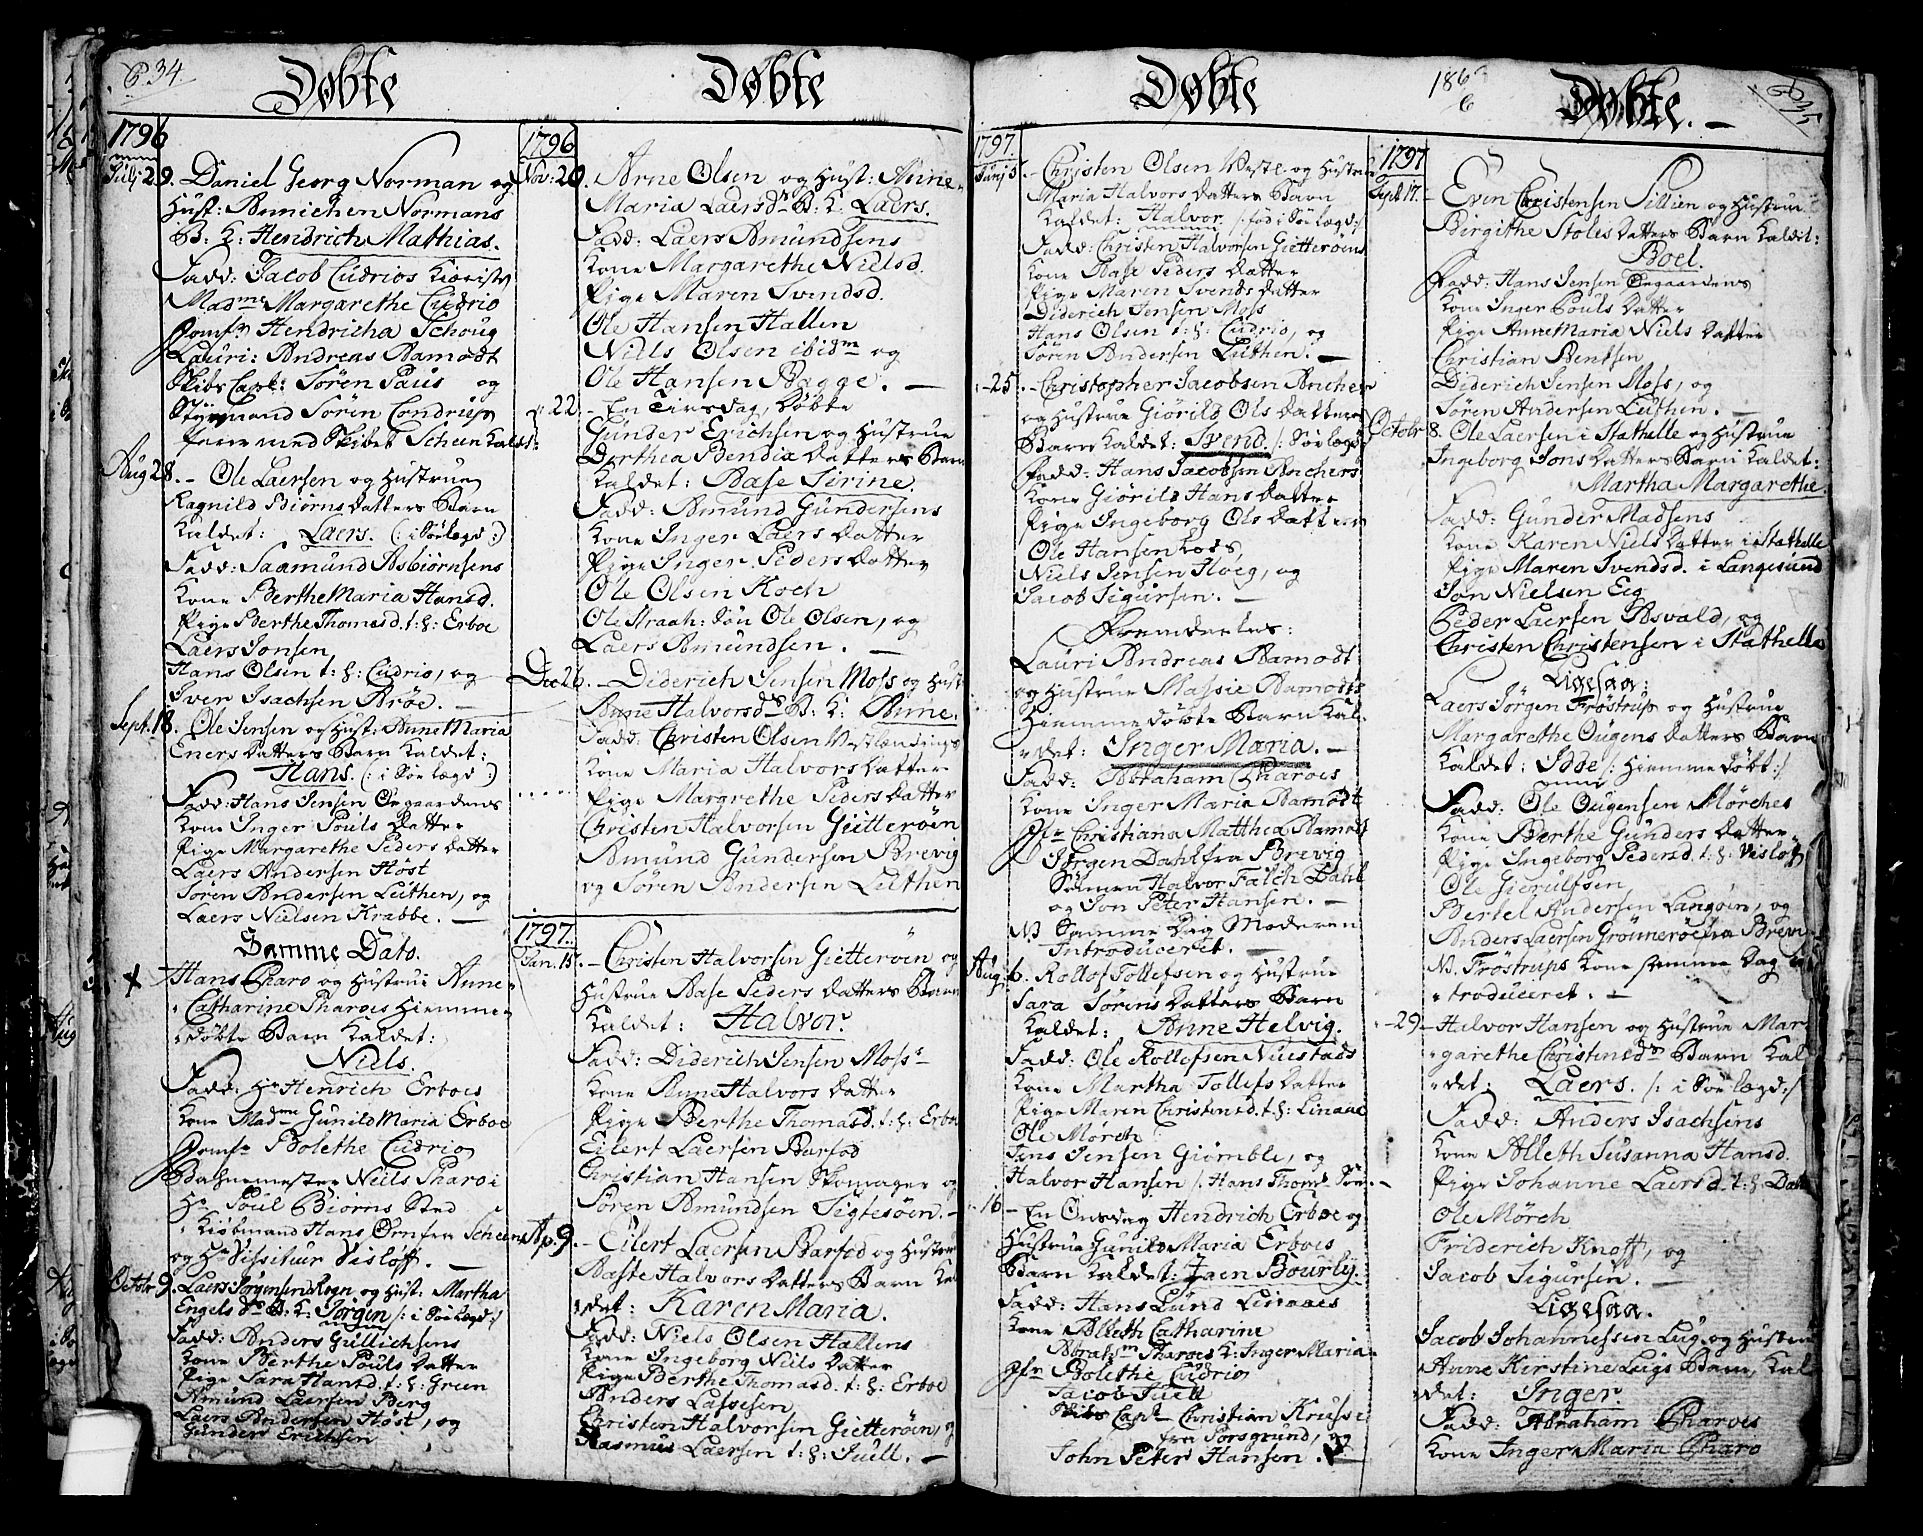 P. 34.
Døbte
1796
Julj 29. Daniel Georg Norman og
Hust: Annichen Normans
B: K: Hendrich Mathias.
Fadd: Jacob Cudrios Kiæriste
Madme Margarethe Cudrio
Jomfr Hendricha Schoug
Lauri: Andreas Aamodt
Skibs Capt: Sören Paus og
Styrmand Sören Condrup
farer med Skibet Scheen Kaldet
Aug 28. - Ole Laersen og Hustrue
Ragnild Biörns Datters Barn
Kaldet: Laers. (: i Sörlogd :)
Fadd: Saamund Asbiörnsens
Kone Berthe Maria Hansd.
Pige Berthe Thomasd. t: H: Erboe
Laers Jonsen
Hans Olsen t: H: Cudrio, og
Iver Isachsen Bröe. -
Sept. 18. Ole Jensen og Hust: Anne Maria
Eners Datters Barn Kaldet:
Hans. (: i Sör logd :)
Fadd: Hans Jensen Öegaardens
Kone Inger Pouls Datter
Pige Margarethe Peders Datter
Laers Andersen Höst
Sören Andersen Luthen, og
Laers Nielsen Krabbe. -
Samme Dato.
Hans Charo og Hustrue Anne
Catharine Pharoes Hiemme
döbte Barn Kaldet:
Niels.
Fadd: Hr Henrich Erboes
Kone Madme Gunild Maria Erboe
Jomfr Bolethe Cudrio
Niels Pharoe
Hr Poul Biörnsted
Kiöbmand Hans Örn fra Scheen
og Hr Visiteur Vislöff. -
Octobr 9. Laers Jörgensen Rogn og Hust: Martha
Engels Dr B: K: Jörgen /: i Sörlogd :/
Fadd: Anders Gullichsens
Kone Berthe Pouls Datter
Pige Sara Hansd. t: H: Green
Amund Laersen Berg
Laers Andersen Höst, og
Gunder Erichsen
Døbte
1796
Nov: 20. Arne Olsen og Hust: Anne
Maria Laersdr B: K: Laers.
Fadd: Laers Amundsens
Kone Margarethe Nielsd.
Pige Maren Svendsd.
Ole Hansen Hallen
Niels Olsen ibidm og
Ole Hansen Bagge. -
22. - En Tirsdag, Döbte
Gunder Erichsen og Hustrue
Dorthea Bendix Datters Barn
Kaldet: Aase Sirine.
Fadd: Amund Gundersens
Kone Inger Laers Datter
Pige Inger Peders Datter
Ole Olsen Koch
Ole Straah: Jon Ole Olsen, og
Laers Amundsen. -
Dec 26. - Diderich Jensen Moss og Hust
Anne Halvorsdr B: K: Anne.
Fadd: Christen Olsen Vestlændings
Kone Maria Halvors Datter
Pige Margrethe Peders Datter
Christen Halvorsen Gietteröen
Amund Gundersen Brevig
og Sören Andersen Luthen
1797.
Jan. 15. - Christen Halvorsen Gietteröen og
Hustrue Aase Peders Datters Barn
Kaldet: Halvor.
Fadd: Diderich Jensen Moss
Kone Anne Halvors Datter
Pige Berthe Thomasd. t: H: Erboe
Eilert Laersen Barfod
Christian Hansen Skomager og
Sören Amundsen Sigtesöen. -
Ap. 9. - Eilert Laersen Barfod og Hustrue
Aaste Halvors Datters Barn Kal
det: Karen Maria.
Fadd: Niels Olsen Hallens
Kone Ingeborg Niels Datter
Pige Berthe Thomasd. t: H: Erboe
Anders Lassesen
Christen Halvorsen Gietteröen, og
Rasmus Laersen t: H: Juell. -
Døbte
1797.
Junj 5. - Christen Olsen Vestl og Hustrue
Maria Halvors Datters Barn
Kaldet: Halvor /: föd i Sörlogd :/
Fadd: Christen Halvorsen Gietteröens
Kone Aase Peders Datter
Pige Maren Svends Datter
Diderich Jensen Moss
Hans Olsen t: H: Cudrio, og
Sören Andersen Luthen. -
25. - Christopher Jacobsen Ancher
og Hustrue Giörild Ols Datters
Barn Kaldet: Svend. /: Sörlogd :/
Fadd: Hans Jacobsen Anchers
Kone Giörild Hans Datter
Pige Ingeborg Ols Datter
Ole Hansen Lods,
Niels Jensen Hoeg, og
Jacob Sigursen. -
Fremdeeles:
Lauri Andreas Aamodt
og Hustrue Massie Aamodts
Hiemme döbte Barn Kal
det: Inger Maria. -
Fadd: Abraham Charoes
Kone Inger Maria Aamodt
Jfr Christiana Matthea Aamodt
Jörgen Dahl fra Brevig
Halvor Falch Dahl
og Jon Peter Hansen. -
NB Samme Dag Moderen
Introduceret. -
Aug. 6. Rollof Tollefsen og Hustrue
Sara Sörens Datters Barn
Kaldet: Anne Helvig.
Fadd: Ole Rollefsen Nustads
Kone Martha Tollefs Datter
Pige Maren Christensd. t: H: Linaae
Ole Mörch
Jens Jensen Giömble, og
Halvor Hansen /: Hans Thoms Sön. -
16 - En Onsdag Hendrich Erboe og
Hustrue Gunild Maria Erboes
Barn Kaldet: Jaen Bourly.
Fadd: Hans Lund Linaaes
Kone Alleth Catharine
Abrahm Pharoes K: Inger Maria
Jfr Bolethe Cudrio
Jacob Juell
Skibs Capt Christian Kruse
fra Porsgrund, og
John Peter Hansen. -
186
6
Døbte. -
P 35
1797
Sept 17. - Even Christensen Sillien og Hustrue
Birgithe Stoles Datters Barn Kaldet:
Boel.
Fadd: Hans Jensen Öegaardens
Kone Inger Pouls Datter
Pige Anne Maria Niels Datter
Christian Bentsen
Diderich Jensen Moss, og
Sören Andersen Luthen. -
Octobr 8. Ole Laersen i Stathelle og Hustrue
Ingeborg Jons Datters Barn Kaldet:
Martha Margarethe.
Fadd: Gunder Madsens
Kone Karen Niels Datter i Stathelle
Pige Maren Svendsd. i Langesund
Jon Nielsen Eeg
Peder Laersen Asvald, og
Christen Christensen i Stathelle
Ligesaa:
Laers Jörgen Fröstrup og Hustrue
Margarethe Ougens Datters Barn
Kaldet: Idde /: Hiemme Döbt :/
Fadd: Ole Ougensen Mörches
Kone Berthe Gunders Datter
Pige Ingeborg Pedersd. t: H: Vislöff
Ole Gierulfsen
Bertel Andersen Langöen, og
Anders Laersen Grönneröe fra Brevi
NB. Fröstrups Kone samme Dag In
troduceret. -
29. - Halvor Hansen og Hustrue Mar
garethe Christensdr Barn Kal
det: Laers. /: i Sör logd :/
Fadd: Anders Isachsens
Kone Alleth Susanna Hansd.
Pige Johanne Laersd. t: H: Dahl
Ole Mörch
Friderich Knoff, og
Jacob Sigursen. -
Ligesaa.
Jacob Johannessen Luig og Hustrue
Anne Kirstine Luigs Barn, Kal
det: Inger
Fadd: Abraham Charoes
Kone Inger Maria Charo